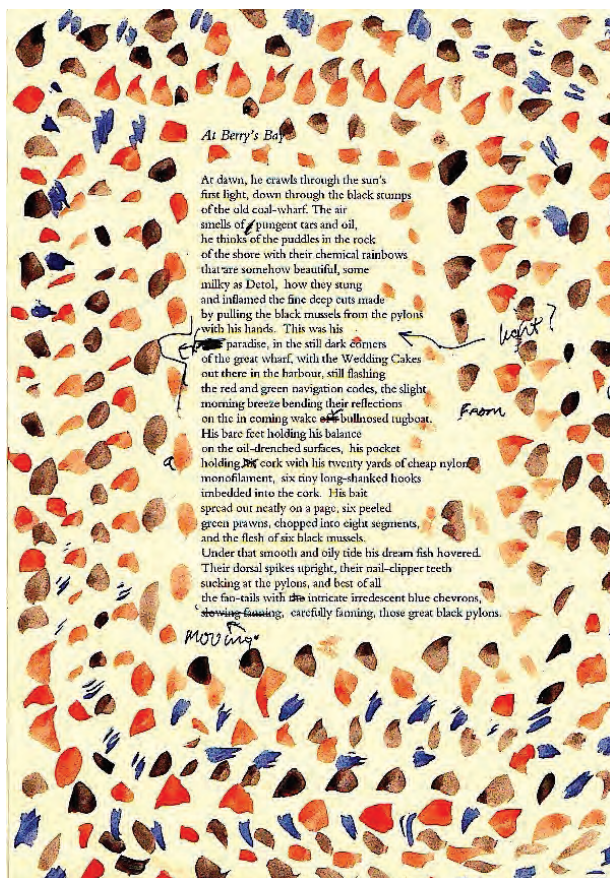 At Berry's Bay
At dawn, he crawls through the sun's
first light, down through the black stumps
of the old coal-wharf. The air
smells of pungent tars and oil,
he thinks of the puddles in the rock
of the shore with their chemical rainbows
that are somehow beautiful, some
milky as Detol, how they stung
and inflamed the fine deep cuts made
by pulling the black mussels from the pylons
with his hands. This was his
light?
paradise, in the still dark corners
of the great wharf, with the Wedding Cakes
out there in the harbour, still flashing
the red and green navigation codes, the slight
morning breeze bending their reflections
FROM
on the in coming wake bullnosed tugboat.
His bare feet holding his balance
on the oil-drenched surfaces, his pocket
a
holding cork with his twenty yards of cheap nylon
monofilament, six tiny long-shanked hooks
imbedded into the cork. His bait
spread out neatly on a page, six peeled
green prawns, chopped into eight segments,
and the flesh of six black mussels.
Under that smooth and oily tide his dream fish hovered.
Their dorsal spikes upright, their nail-clipper teeth
sucking at the pylons, and best of all
the fan-tails with the intricate irredescent blue chevrons,
slowing fanning, carefully fanning, those great black pylons.
MOVING